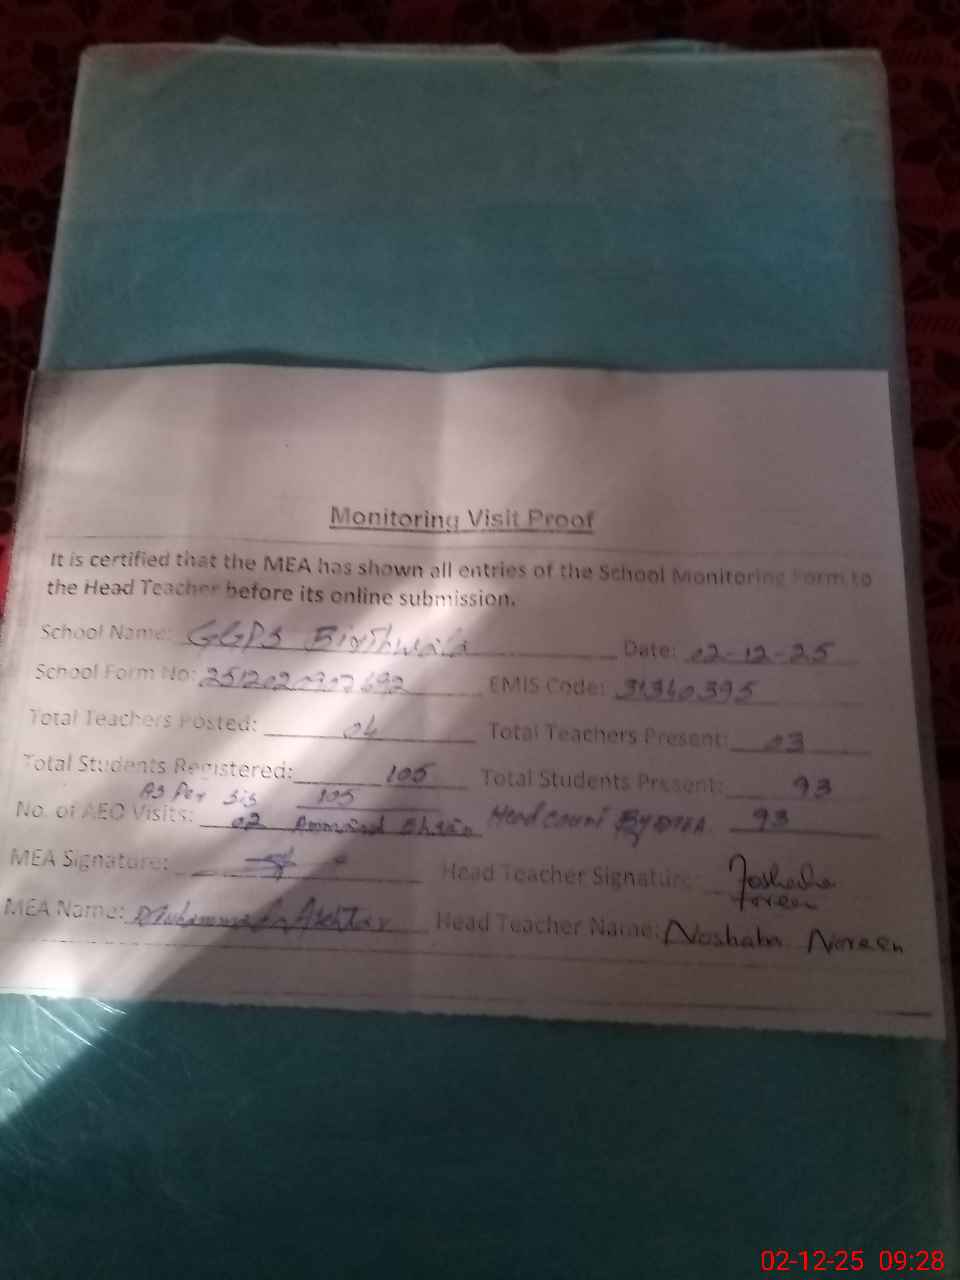 Monitoring Visit Proof
It is certified that the MEA has shown all entries of the School Monitoring Form to
the Head Teacher before its online submission.
School Name: GGPS Date: 02-12-25
School Form No: EMIS Code: 31340395
Total Teachers Posted: 04 Total Teachers Present: 03
Total Students Registered: 105 Total Students Present: 93
As Per Sis 105
No. of AEO Visits: 02 Head count By MEA 93
MEA Signature: Head Teacher Signature: Noshaba
Noreen
MEA Name: Muhammad Head Teacher Name: Noshaba Noreen
02-12-25 09:28